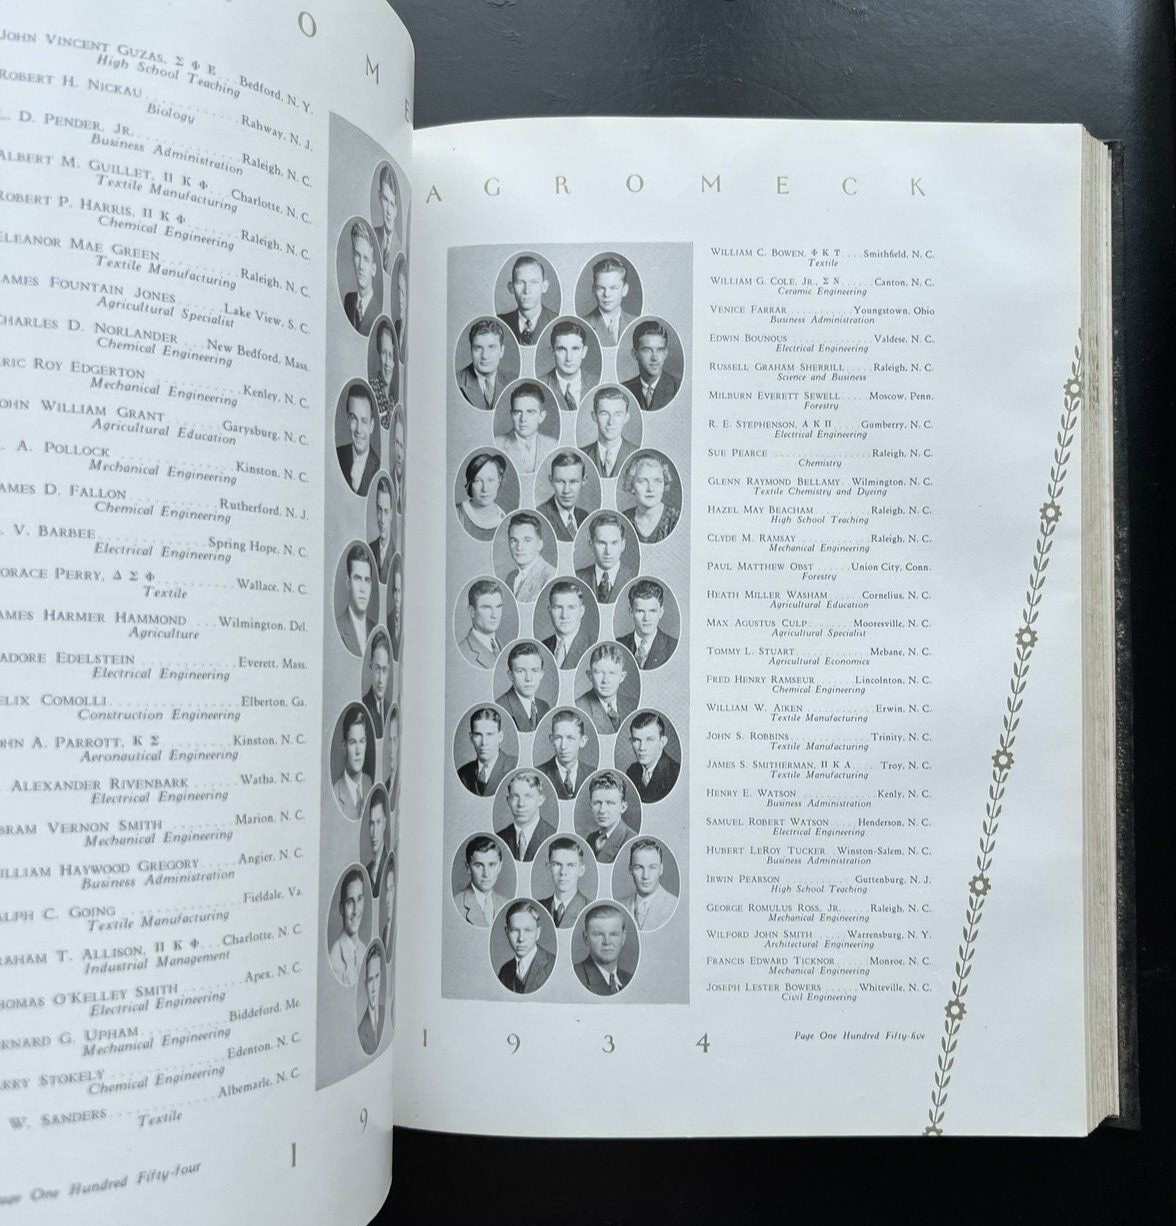 O M E
JOHN VINCENT GUZAS, Σ Φ E . . . Bedford, N. Y.
High School Teaching
ROBERT H. NICKAU . . . . . . . . . . . Rahway, N. J.
Biology
D. PENDER, JR. . . . . . . . . . . . . Raleigh, N. C.
Business Administration
ALBERT M. GUILLET, Π K Φ . . . Charlotte, N. C.
Textile Manufacturing
ROBERT P. HARRIS, Π K Φ . . . . . . Raleigh, N. C.
Chemical Engineering
ELEANOR MAE GREEN . . . . . . . . . . Raleigh, N. C.
Textile Manufacturing
AMES FOUNTAIN JONES . . . . . . Lake View, S. C.
Agricultural Specialist
CHARLES D. NORLANDER . . . New Bedford, Mass.
Chemical Engineering
RIC ROY EDGERTON . . . . . . . . . . . Kenley, N. C.
Mechanical Engineering
OHN WILLIAM GRANT . . . . . . . Garysburg, N. C.
Agricultural Education
A. POLLOCK . . . . . . . . . . . . . . . Kinston, N. C.
Mechanical Engineering
AMES D. FALLON . . . . . . . . . . Rutherford, N. J.
Chemical Engineering
V. BARBEE . . . . . . . . . . . . Spring Hope, N. C.
Electrical Engineering
ORACE PERRY, Δ Σ Φ . . . . . . . . . Wallace, N. C.
Textile
AMES HARMER HAMMOND . . . Wilmington, Del.
Agriculture
ADORE EDELSTEIN . . . . . . . . . . . Everett, Mass.
Electrical Engineering
ELIX COMOLLI . . . . . . . . . . . . . . Elberton, Ga.
Construction Engineering
OHN A. PARROTT, K Σ . . . . . . . . Kinston, N. C.
Aeronautical Engineering
ALEXANDER RIVENBARK . . . . . . . Watha, N. C.
Electrical Engineering
BRAM VERNON SMITH . . . . . . . . . Marion, N. C.
Mechanical Engineering
ILLIAM HAYWOOD GREGORY . . . . Angier, N. C.
Business Administration
ALPH C. GOING . . . . . . . . . . . . . . Fieldale, Va.
Textile Manufacturing
RAHAM T. ALLISON, Π K Φ . . . Charlotte, N. C.
Industrial Management
HOMAS O'KELLEY SMITH . . . . . . . . Apex, N. C.
Electrical Engineering
RNARD G. UPHAM . . . . . . . . . . . Biddeford, Me.
Mechanical Engineering
RRY STOKELY . . . . . . . . . . . . . . Edenton, N. C.
Chemical Engineering
W. SANDERS . . . . . . . . . . . . . . Albemarle, N. C.
Textile
1 9
One Hundred Fifty-four
A G R O M E C K
WILLIAM C. BOWEN, Φ K T . . . . Smithfield, N. C.
Textile
WILLIAM G. COLE, JR., Σ N . . . . . . Canton, N. C.
Ceramic Engineering
VENICE FARRAR . . . . . . . . . . . Youngstown, Ohio
Business Administration
EDWIN BOUNOUS . . . . . . . . . . . . . Valdese, N. C.
Electrical Engineering
RUSSELL GRAHAM SHERRILL . . . . . Raleigh, N. C.
Science and Business
MILBURN EVERETT SEWELL . . . . . Moscow, Penn.
Forestry
R. E. STEPHENSON, A K Π . . . . . Gumberry, N. C.
Electrical Engineering
SUE PEARCE . . . . . . . . . . . . . . . . . Raleigh, N. C.
Chemistry
GLENN RAYMOND BELLAMY . Wilmington, N. C.
Textile Chemistry and Dyeing
HAZEL MAY BEACHAM . . . . . . . . . Raleigh, N. C.
High School Teaching
CLYDE M. RAMSAY . . . . . . . . . . . . Raleigh, N. C.
Mechanical Engineering
PAUL MATTHEW OBST . . . . . . Union City, Conn.
Forestry
HEATH MILLER WASHAM . . . . . . Cornelius, N. C.
Agricultural Education
MAX AGUSTUS CULP . . . . . . . . . Mooresville, N. C.
Agricultural Specialist
TOMMY L. STUART . . . . . . . . . . . . . Mebane, N. C.
Agricultural Economics
FRED HENRY RAMSEUR . . . . . . . Lincolnton, N. C.
Chemical Engineering
WILLIAM W. AIKEN . . . . . . . . . . . . . Erwin, N. C.
Textile Manufacturing
JOHN S. ROBBINS . . . . . . . . . . . . . . Trinity, N. C.
Textile Manufacturing
JAMES S. SMITHERMAN, Π K A . . . . . Troy, N. C.
Textile Manufacturing
HENRY E. WATSON . . . . . . . . . . . . . Kenly, N. C.
Business Administration
SAMUEL ROBERT WATSON . . . . . Henderson, N. C.
Electrical Engineering
HUBERT LEROY TUCKER . Winston-Salem, N. C.
Business Administration
IRWIN PEARSON . . . . . . . . . . . . Guttenburg, N. J.
High School Teaching
GEORGE ROMULUS ROSS, JR. . . . . . Raleigh, N. C.
Mechanical Engineering
WILFORD JOHN SMITH . . . . . Warrensburg, N. Y.
Architectural Engineering
FRANCIS EDWARD TICKNOR . . . . . Monroe, N. C.
Mechanical Engineering
JOSEPH LESTER BOWERS . . . . . . Whiteville, N. C.
Civil Engineering
1 9 3 4
Page One Hundred Fifty-five